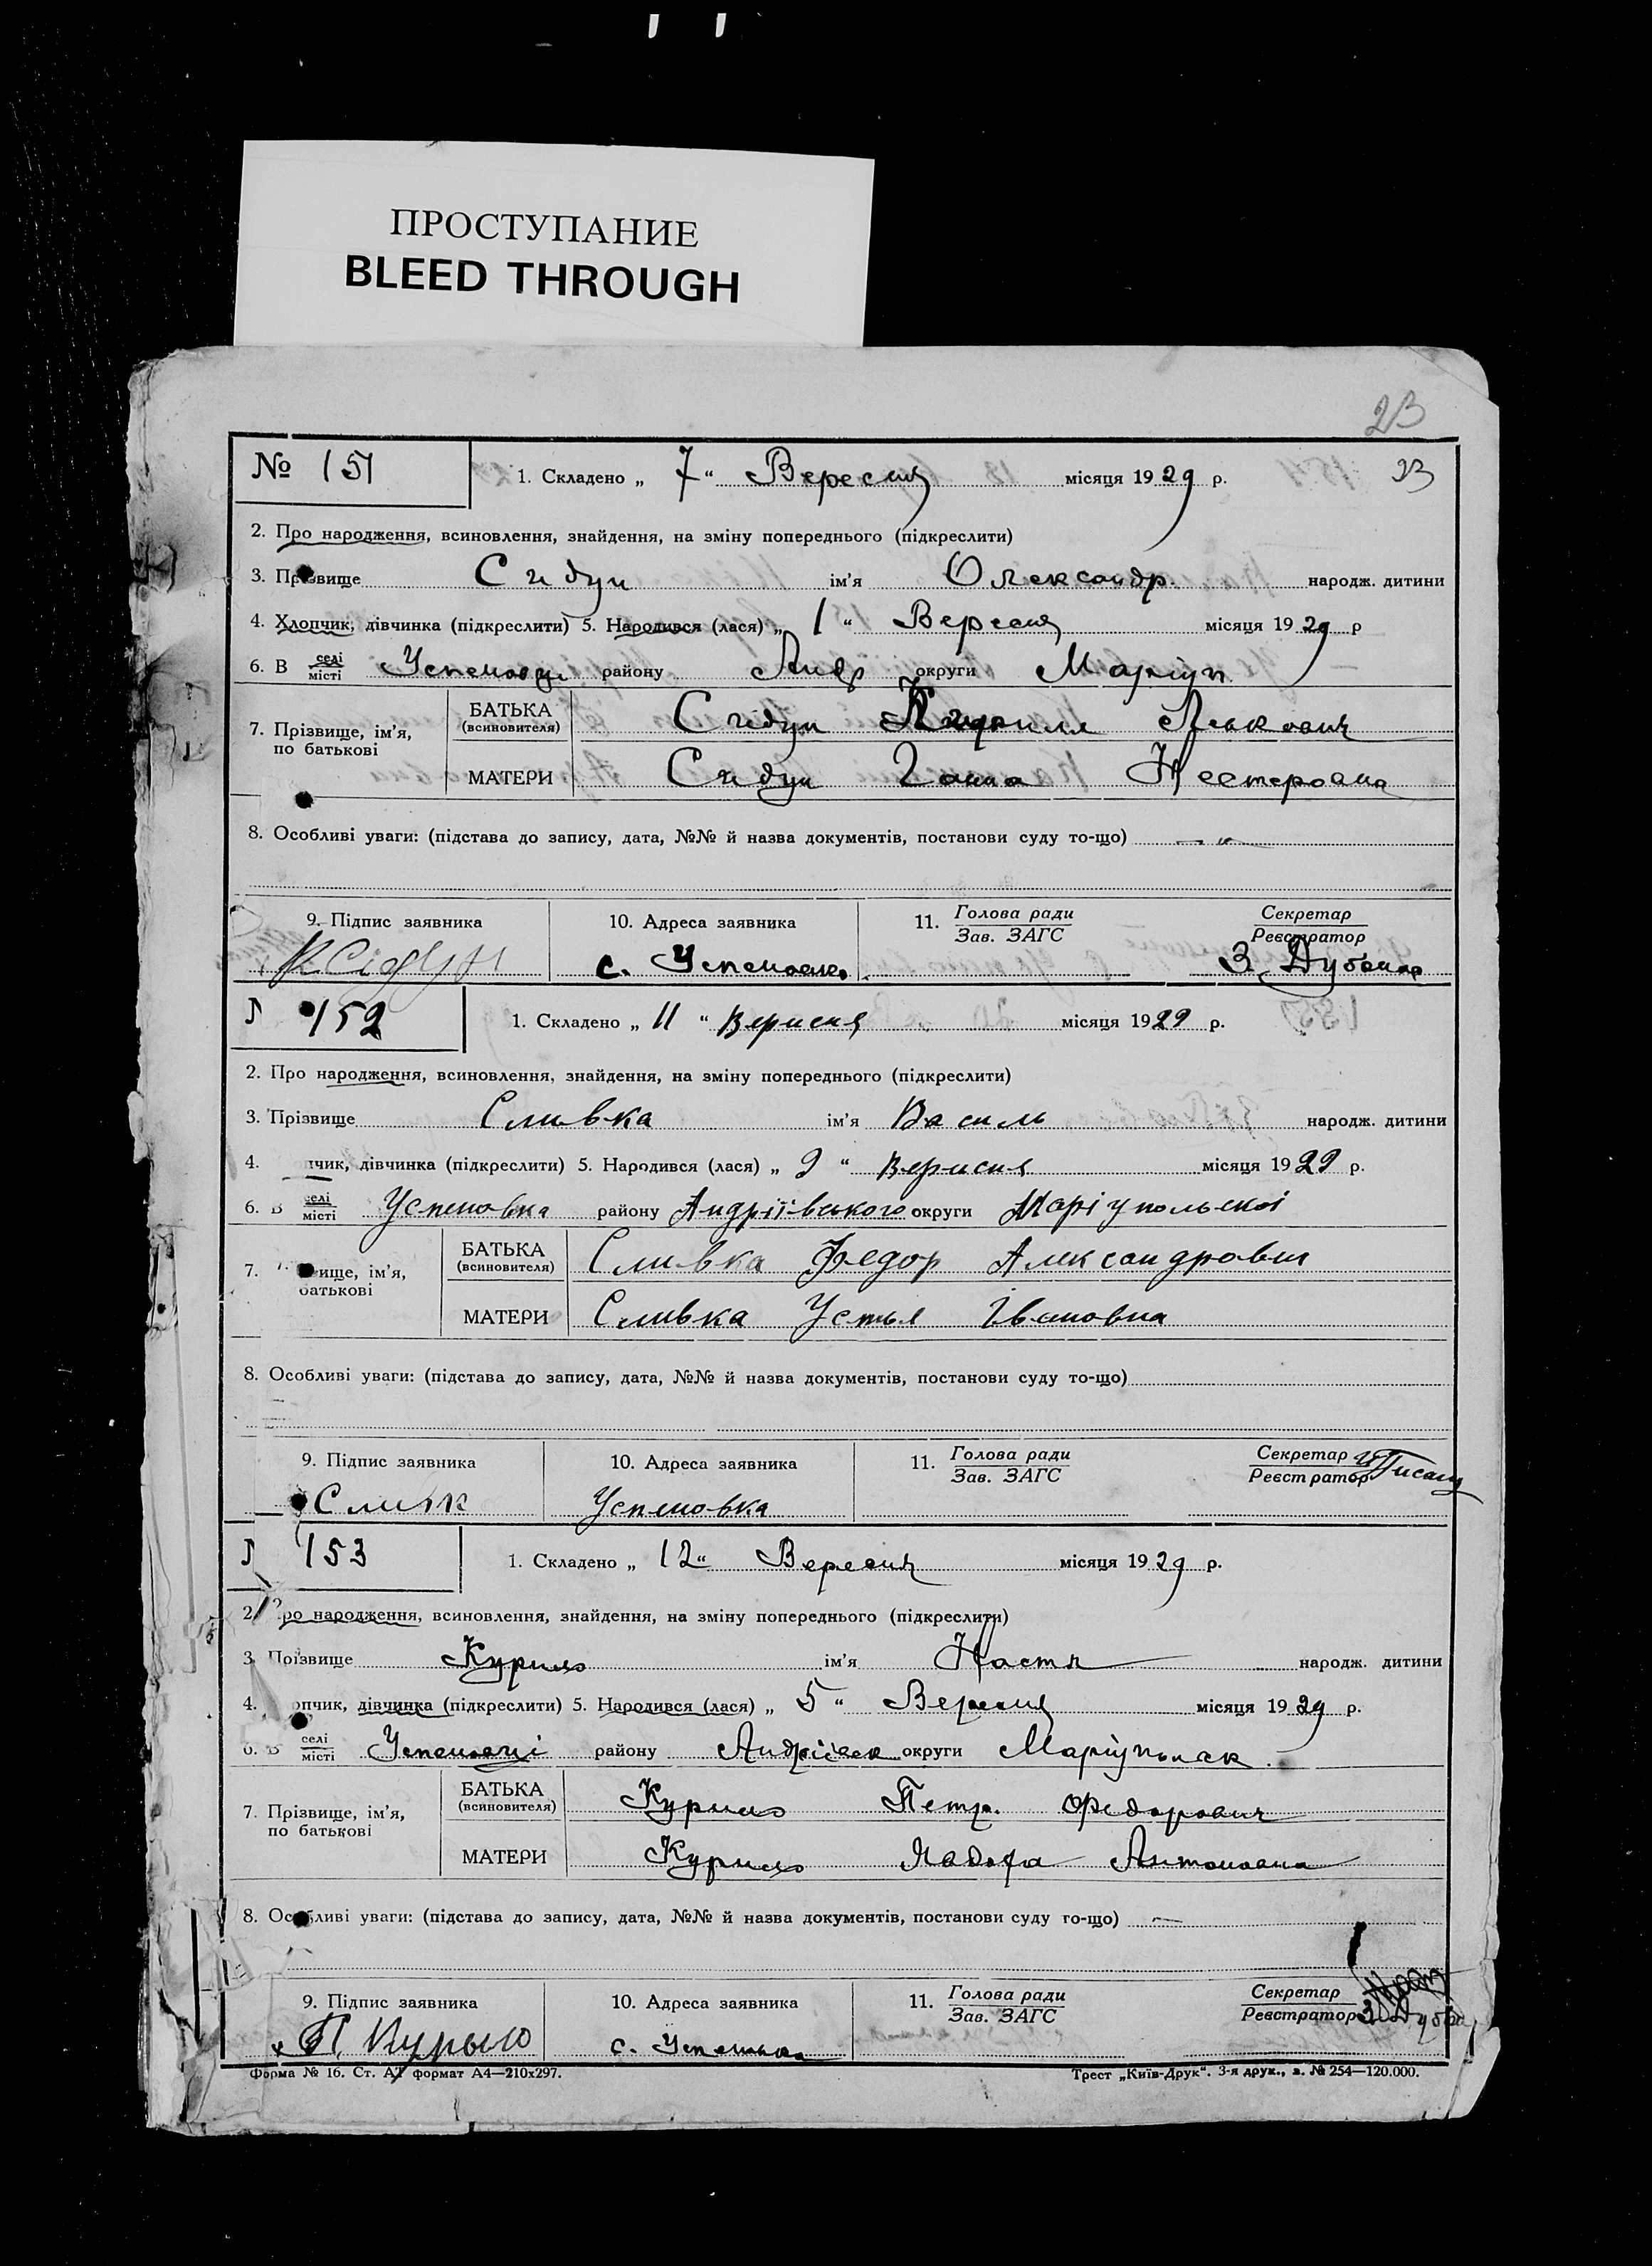 ПРОСТУПАНИЕ
BLEED THROUGH
23
№ 151 1. Складено „ 7 “ Вересня місяця 1929 р. 23
2. Про народження, всиновлення, знайдення, на зміну попереднього (підкреслити)
3. Прізвище Сидун ім'я Олександр. народж. дитини
4. Хлопчик, дівчинка (підкреслити) 5. Народився (лася) „ 1 “ Вересня місяця 1929 р
6. В селі місті Успеновці району Андр округи Маріуп.
7. Прізвище, ім'я, по батькові
БАТЬКА (всиновителя) Сидун Кирило Лькович
МАТЕРИ Сидун Ганна Нестеровна
8. Особливі уваги: (підстава до запису, дата, №№ й назва документів, постанови суду то-що)
9. Підпис заявника 10. Адреса заявника 11. Голова ради Зав. ЗАГС Секретар Реєстратор
К Сідун с. Успеновка З. Дубона
152 1. Складено „ 11 “ Верисня місяця 1929 р.
2. Про народження, всиновлення, знайдення, на зміну попереднього (підкреслити)
3. Прізвище Сливка ім'я Василь народж. дитини
4. пчик, дівчинка (підкреслити) 5. Народився (лася) „ 9 “ Верисня місяця 1929 р.
6. В селі місті Успеновка району Андріївського округи Маріупольскоі
7. вище, ім'я, батькові
БАТЬКА (всиновителя) Сливка Федор Александрович
МАТЕРИ Сливка Устья Івановна
8. Особливі уваги: (підстава до запису, дата, №№ й назва документів, постанови суду то-що)
9. Підпис заявника 10. Адреса заявника 11. Голова ради Зав. ЗАГС Секретар Реєстратор
Сливк Успеновка
153 1. Складено „ 12 “ Вересня місяця 1929 р.
2. Про народження, всиновлення, знайдення, на зміну попереднього (підкреслити)
3. Прізвище Курило ім'я Настя народж. дитини
4. опчик, дівчинка (підкреслити) 5. Народився (лася) „ 5 “ Вересня місяця 1929 р.
6. В селі місті Успеновці району Андріївск округи Маріупольск.
7. Прізвище, ім'я, по батькові
БАТЬКА (всиновителя) Курило Петро. Федорович
МАТЕРИ Курило Антоновна
8. Особливі уваги: (підстава до запису, дата, №№ й назва документів, постанови суду то-що)
9. Підпис заявника 10. Адреса заявника 11. Голова ради Зав. ЗАГС Секретар Реєстратор
П. Курыло с. Успеновка З. Дубо
Форма № 16. Ст. А7 формат А4—210x297. Трест „Київ-Друк“. 3-я друк., з. № 254—120.000.